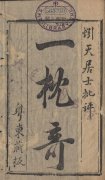 天居士批評
一枕奇
粵東藏板